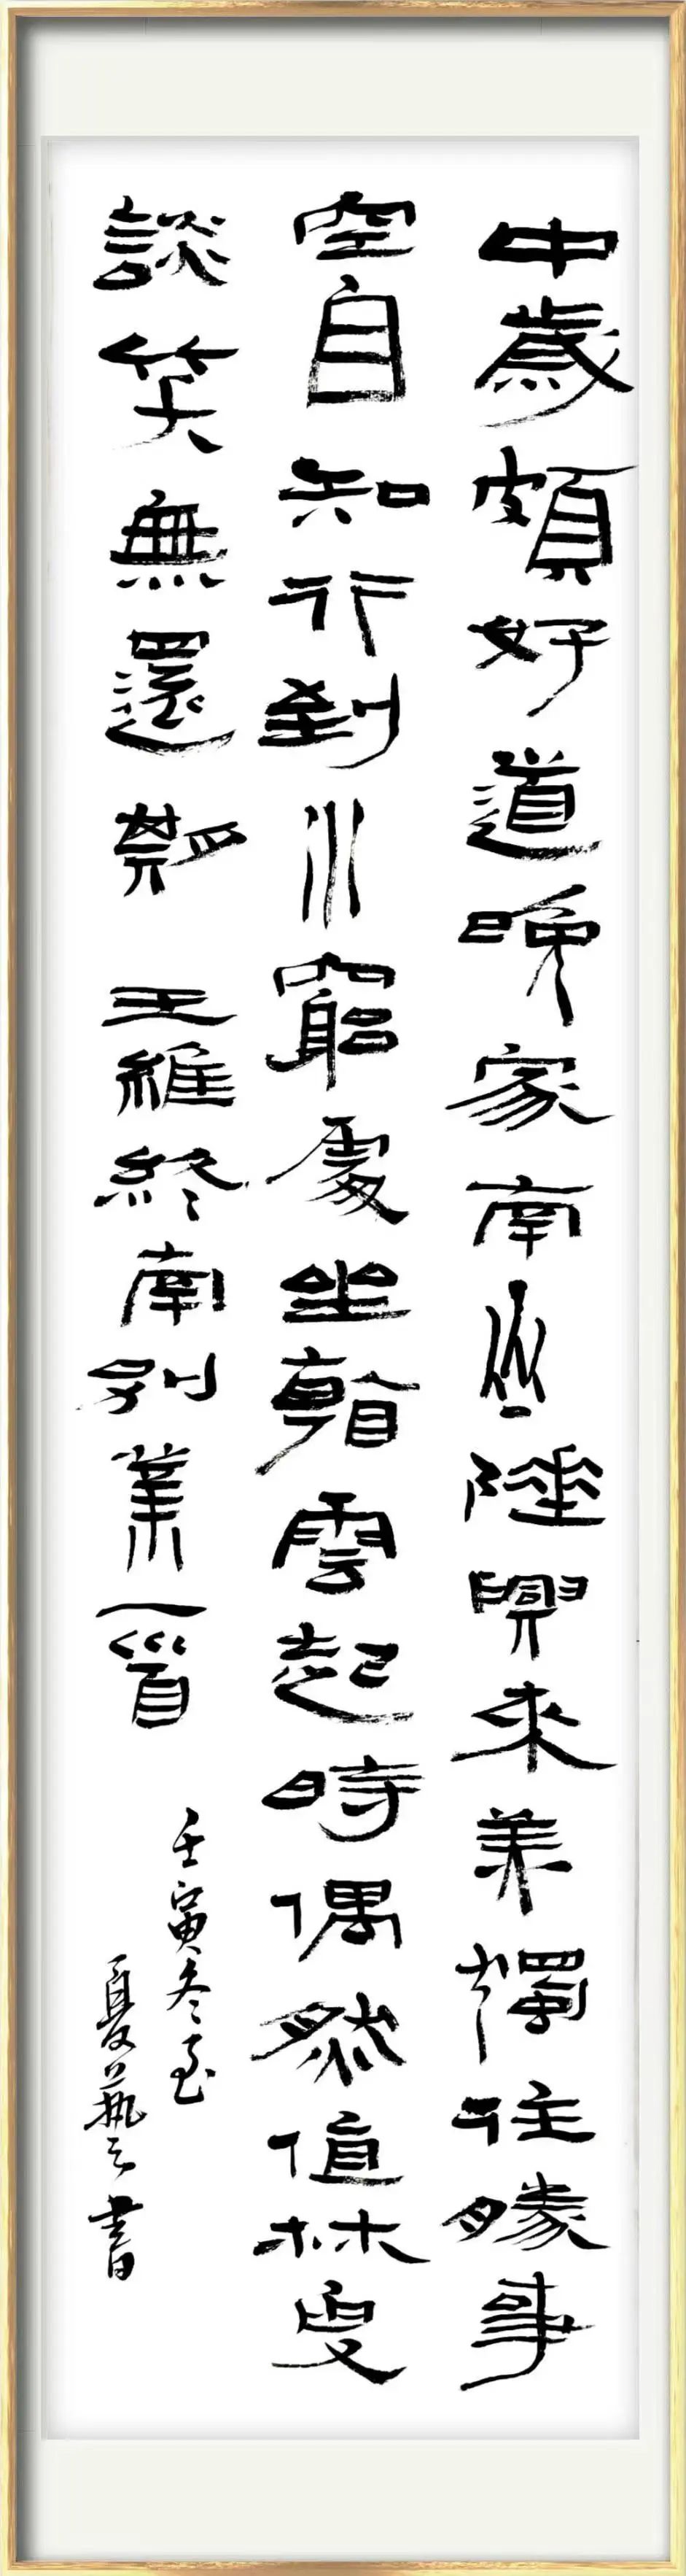 中歲頗好道晚家南山陲興來美獨往勝事
空自知行到水窮處坐看雲起時偶然值林叟
談笑無還期 王維終南別業一首
壬寅冬至
夏藝書